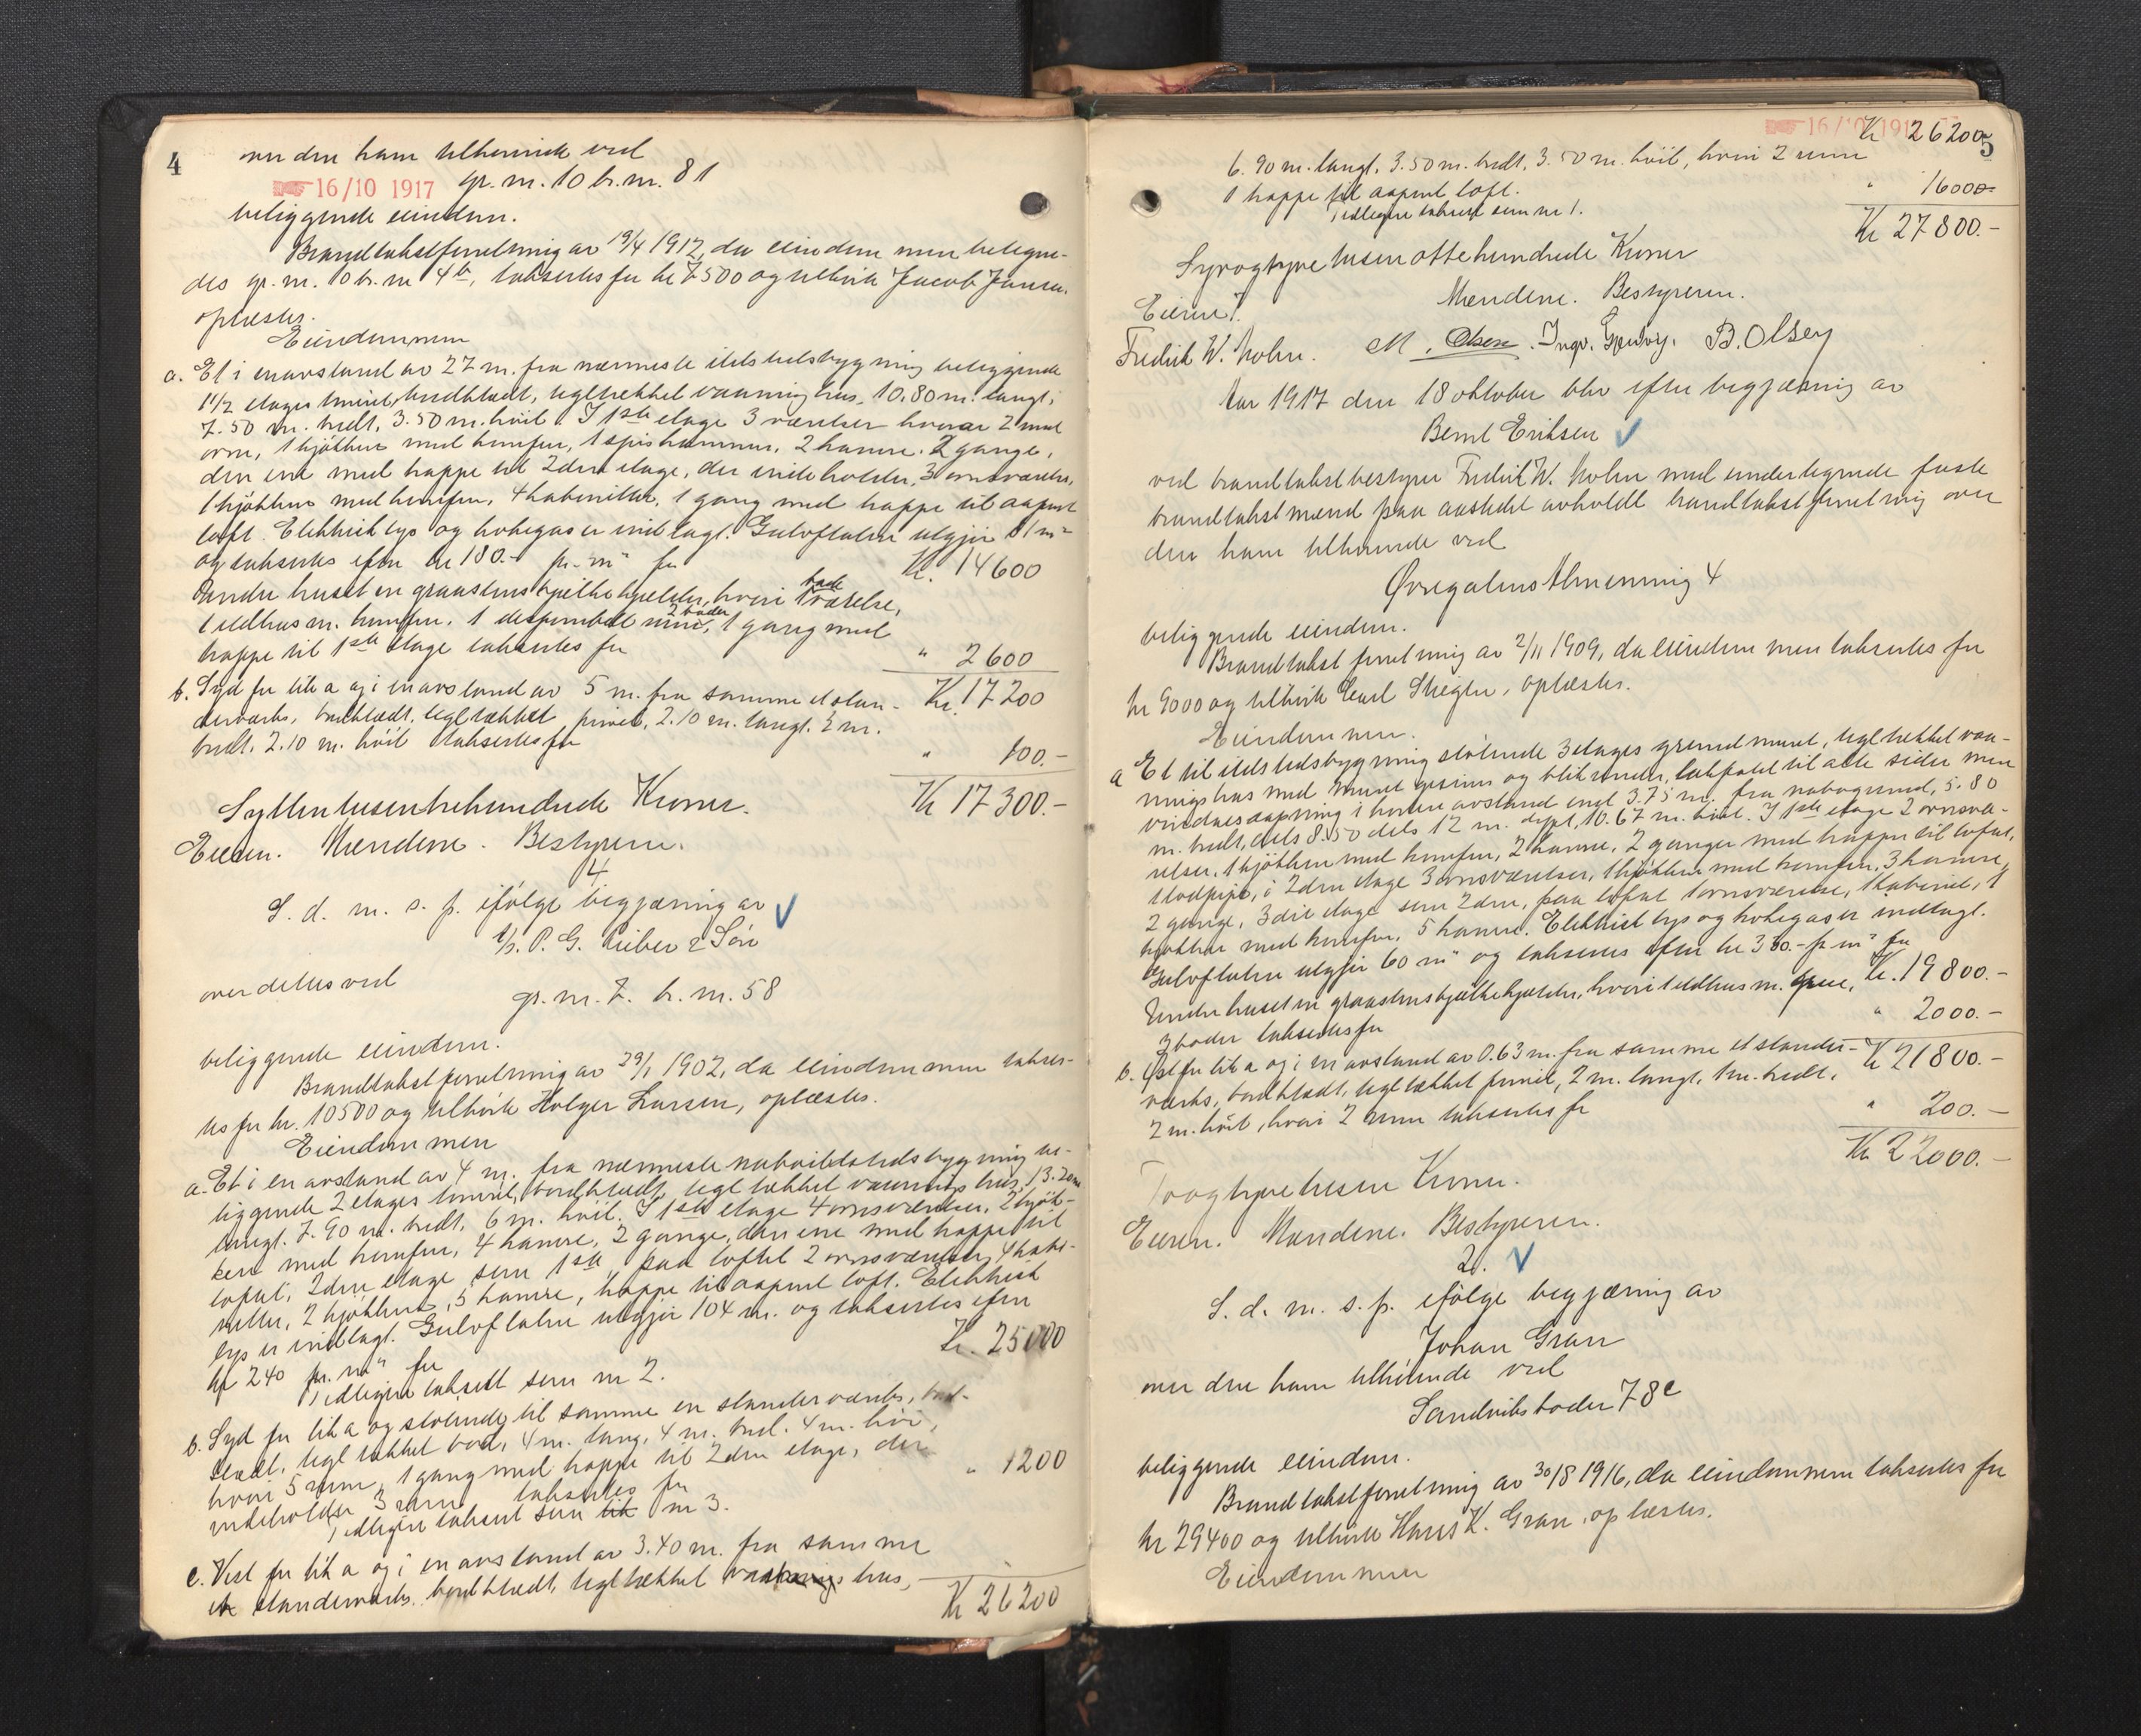 4
over den ham tilhørende ved
16/10 1917 gr. nr. 10 br. nr. 81
beliggende eiendom.
Brandtakstforretning av 19/4 1912, da eiendommen betegne-
des gr. nr. 10 br. nr 4 b, taksertes for kr 7500 og tilhørte Jacob Jansen,
oplæstes.
Eiendommen
a. Et i en avstand av 27 m. fra nærmeste ildstedsbygning beliggende
1 1/2 etages tømret, bordklædt, tegltækket vaaningshus, 10.80 m. langt,
7.50 m. bredt, 3.50 m. høit. I 1ste etage 3 værelser hvorav 2 med
ovn, 1 kjøkken med komfur, 1 spiskammer, 2 kamre. 2 gange,
den ene med trappe til 2den etage, der indeholder, 3 ovnsværelser,
1 kjøkken med komfur, 4 kabinetter, 1 gang med trappe til aapent
loft. Elektrisk lys og kokegas er indlagt. Gulvflaten utgjør 81 m²
og taksertes efter kr 180.- pr. m² for Kr. 14600
Under huset en graastens bjelkekjelder, hvori 1 bade værelse,
1 ildhus m. komfur, 1 2 boder, 1 gang med
trappe til 1ste etage taksertes for " 2600
Kr. 17200
b. Syd for lit a og i en avstand av 5 m. fra samme et stan-
derverks, bordklædt, tegltækket privet, 2.10 m. langt. 2 m.
bredt, 2.10 m. høit taksertes for " 100.-
Kr 17300.-
Syttentusentrehundrede Kroner.
Eieren. Mændene. Bestyreren.
4
S. d. m. s. p. ifølge begjæring av
A/S. P. G. Rieber & Søn
over dettes ved
gr. nr. 7. br. nr. 58
beliggende eiendom.
Brandtakstforretning av 29/1 1902, da eiendommen takser-
tes for kr. 10500 og tilhørte Holger Larsen, oplæstes.
Eiendommen
a. Et i en avstand av 4 m. fra nærmeste naboildstedsbygning be-
liggende 2 etages tømret, bordklædt, tegltækket vaanings hus, 13.20 m
langt. 7.90 m. bredt, 6 m. høit. I 1ste etage 4 ovnsværelser, 2 kjøk-
ken med komfur, 4 kamre, 2 gange, den ene med trappe til
loftet, 2den etage som 1ste, paa loftet 2 ovnsværelser, 4 kabi-
netter, 2 kjøkkener, 5 kamre, trappe til aapent loft. Elektrisk
lys er indlagt. Gulvflaten utgjør 104 m. og taksertes efter
kr 240 pr. m² for Kr. 25000
Tidligere taksert som nr 2.
b. Syd for lit a og støtende til samme en standerverks, bord-
klædt, tegltækket bod, 4 m. lang, 4 m. bred. 4 m. høi,
hvori 5 rum, 1 gang med trappe til 2den etage, der
indeholder 3 rum taksertes for " 1200
Tidligere taksert som lit nr 3.
c. Vest for lit a og i en avstand av 3.40 m. fra samme
et standerverks, bordklædt, tegltækket hus,
Kr 26200
5
16/10 1917 Kr 26200
6.90 m. langt, 3.50 m. bredt, 3.50 m. høit, hvori 2 rum
1 trappe til aapent loft. " 1600
Tidligere taksert som nr 1.
Kr 27800.-
Syvogtyvetusenottehundrede Kroner
Eieren. Mændene. Bestyreren.
Fredrik W. Holm. M. Olsen. B. Olsen
Aar 1917 den 18 oktober blev efter begjæring av
Bernt Eriksen
ved brandtakstbestyrer Fredrik W. Holm med undertegnede faste
brandtakstmænd paa aastedet avholdt brandtakstforretning over
den ham tilhørende ved
Øvregatens Almenning 4
beliggende eiendom.
Brandtakst forretning av 2/11 1909, da eiendommen taksertes for
kr 9000 og tilhørte Carl Stiegler, oplæstes.
Eiendommen.
a Et til ildstedsbygning støtende 3 etages grundmuret, tegltækket vaa-
ningshus med muret gesims og blikrender, til alle sider men
vinduesaapning i kortere avstand end 3.75 m. fra nabogrund, 5.80
m. bredt, dels 8.50 dels 12 m. dypt, 10.67 m. høit. I 1ste etage 2 ovnsvæ-
relser, 1 kjøkken med komfur, 2 kamre, 2 ganger med trapper til loftet,
1 stodpipe, i 2den etage 3 ovnsværelser, 1 kjøkken med komfur, 3 kamre,
2 gange, 3die etage som 2den, paa loftet 1 ovnsværelse, 1 kabinet, 1
kjøkken med komfur, 5 kamre. Elektrisk lys og kokegas er indlagt.
Gulvflaten utgjør 60 m² og taksertes efter kr 330.- pr m² for Kr. 19800.-
Under huset en graastensbjelkekjelder, hvori 1 ildhus m. grue,
3 boder taksertes for " 2000.-
Kr 21800.-
b. Øst for lit a og i en avstand av 0.63 m. fra samme et stander-
verks, bordklædt, tegltækket privet, 2 m. langt, 1 m. bredt,
2 m. høit, hvori 2 rum taksertes for " 200.-
Kr. 22000.-
Toogtyvetusen Kroner.
Eieren. Mændene. Bestyreren.
2.
S. d. m. s. p. ifølge begjæring av
Johan Gran
over den ham tilhørende ved
Sandviksboder 78 c
beliggende eiendom.
Brandtakstforretning av 30/8 1916, da eiendommen taksertes for
kr 29400 og tilhørte Hans K. Gran, oplæstes.
Eiendommen